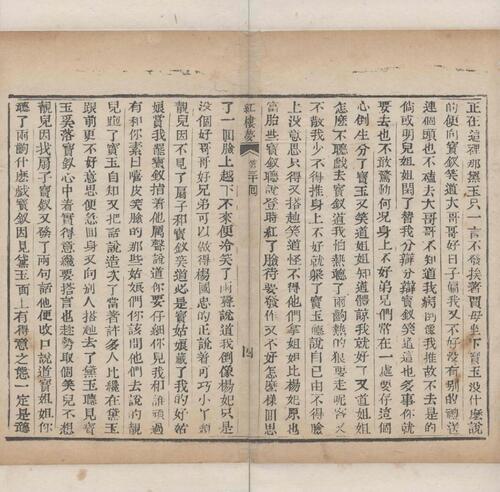 正在這裡那黛玉只一言不發挨著賈母坐下寶玉沒什麼說
的便向寶釵笑道大哥哥好日子偏我又不好沒有別的禮送
連個頭也不磕去大哥哥不知道我病倒像我推故不去是的
倘或明兒姐姐閒了替我分辯分辯寶釵笑道這也多事你就
要去也不敢驚動何况身上不好弟兄們常在一處要存這個
心倒生分了寶玉又笑道姐姐知道體諒我就好了又道姐姐
怎麼不聽戲去寶釵道我怕熱聽了兩齣熱的狠要走呢客又
不散我少不得推身上不好就躱了寶玉聽說自己由不得臉
上沒意思只得又搭赸笑道怪不得他們拿姐姐比楊妃原也
富胎些寶釵聽說登時紅了臉待要發作又不好怎麼樣回思
紅樓夢 第三十囘 四
了一回臉上越下不來便冷笑了兩聲說道我倒像楊妃只是
沒個好哥哥好兄弟可以做得楊國忠的正說著可巧小丫頭
靚兒因不見了扇子和寶釵笑道必是寶姑娘藏了我的好姑
娘賞我罷寶釵指著他厲聲說道你要仔細你見我和誰頑過
有和你素日嘻皮笑臉的那些姑娘們你該問他們去說的靚
兒跑了寶玉自知又把話說造次了當著許多人比纔在黛玉
跟前更不好意思便急回身又向別人搭赸去了黛玉聽見寶
玉奚落寶釵心中着實得意纔要搭言也趁勢取個笑兒不想
靚兒因找扇子寶釵又發了兩句話他便改口說道寶姐姐你
聽了兩齣什麼戲寶釵因見黛玉面上有得意之態一定是聽